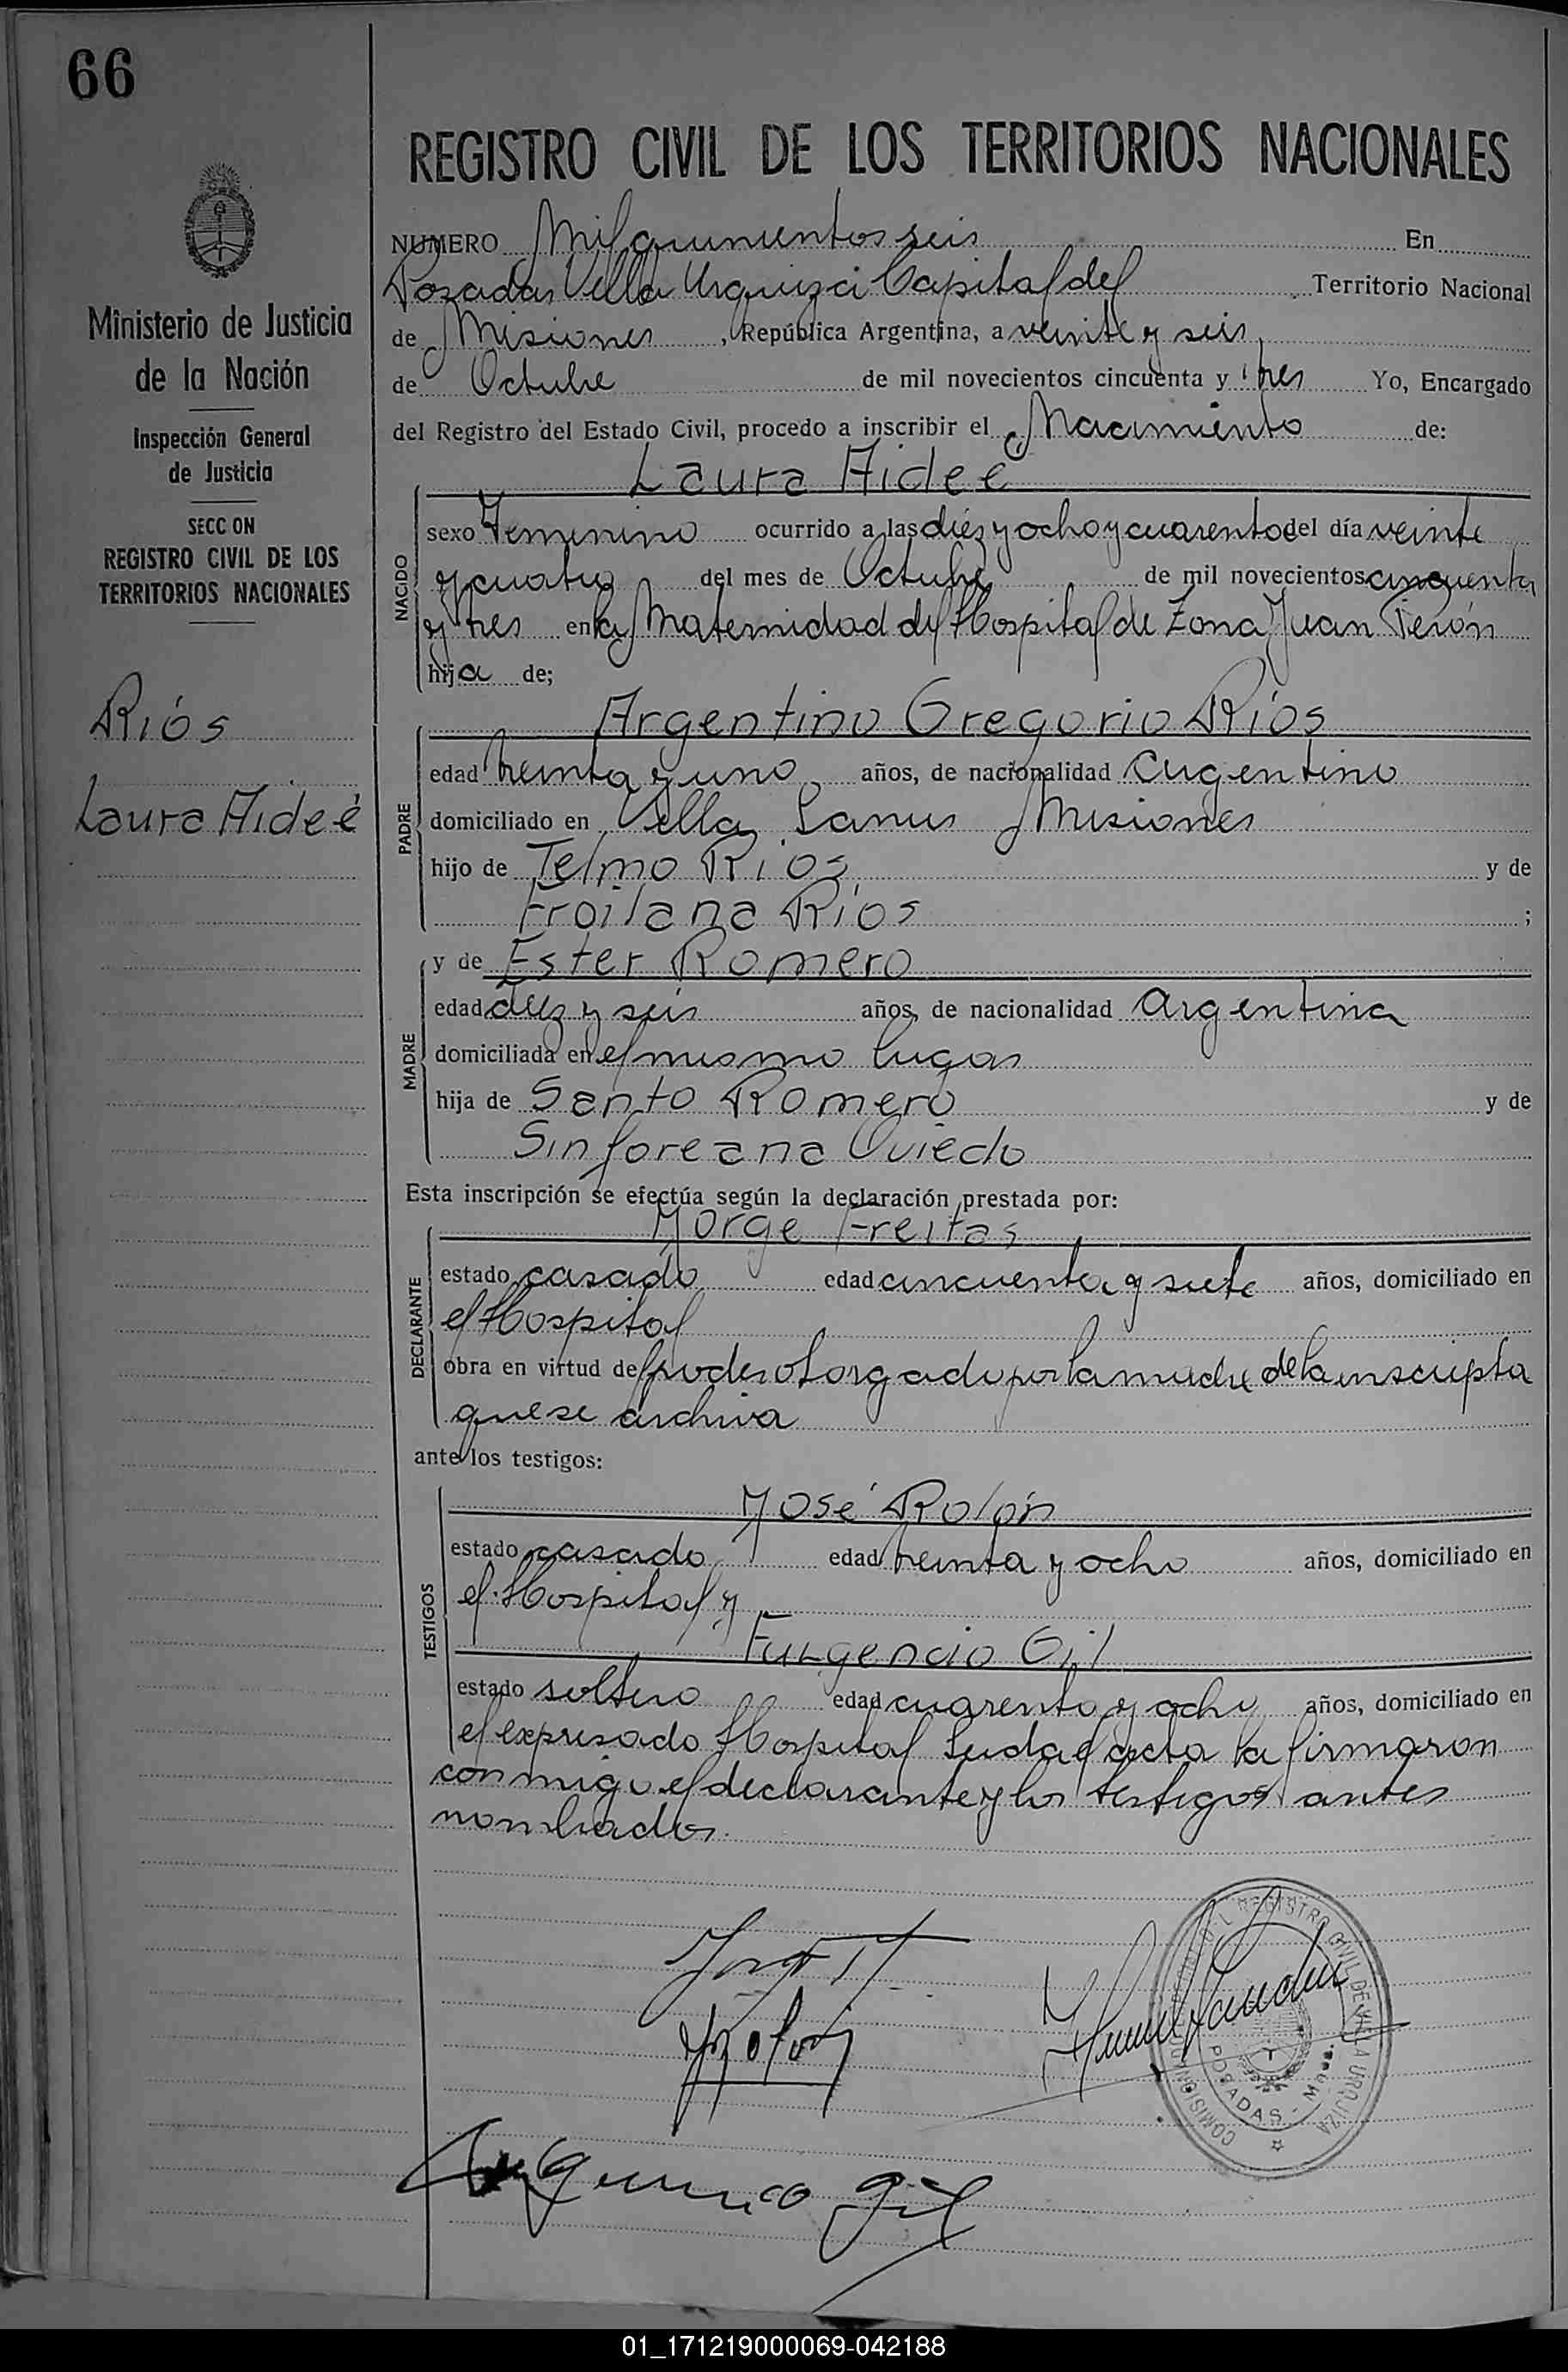 66
REGISTRO CIVIL DE LOS TERRITORIOS NACIONALES
Ministerio de Justicia
de la Nación
Inspección General
de Justicia
SECC ON
REGISTRO CIVIL DE LOS
TERRITORIOS NACIONALES
Ríos
Laura Aideé
NUMERO Mil quinientos seis En
Posadas Villa Urquiza Capital del Territorio Nacional
de Misiones, República Argentina, a veinte y seis
de Octubre de mil novecientos cincuenta y tres Yo, Encargado
del Registro del Estado Civil, procedo a inscribir el Nacimiento de:
Laura Aideé
NACIDO
sexo Femenino ocurrido a las diez y ocho y cuarenta del día veinte
y cuatro del mes de Octubre de mil novecientos cincuenta
y tres en la Maternidad del Hospital de Zona Juan Perón
hija de;
Argentino Gregorio Ríos
PADRE
edad treinta y uno años, de nacionalidad argentino
domiciliado en Villa Lanus Misiones
hijo de Telmo Ríos y de
Froilana Ríos ;
y de Ester Romero
MADRE
edad diez y seis años, de nacionalidad argentina
domiciliada en el mismo lugar
hija de Santo Romero y de
Sinforeana Oviedo
Esta inscripción se efectúa según la declaración prestada por:
Jorge Freitas
DECLARANTE
estado casado edad cincuenta y siete años, domiciliado en
el Hospital
obra en virtud del poder otorgado por la madre de la inscripta
que se archiva
ante los testigos:
José Rolón
TESTIGOS
estado casado edad treinta y ocho años, domiciliado en
el Hospital y
Fulgencio Gil
estado soltero edad cuarenta y ocho años, domiciliado en
el expresado Hospital Leida el acta la firmaron
conmigo el declarante y los testigos antes
nombrados.
JRolón
Fulgencio Gil
REGISTRO CIVIL DE VILLA URQUIZA
POSADAS
01_171219000069-042188